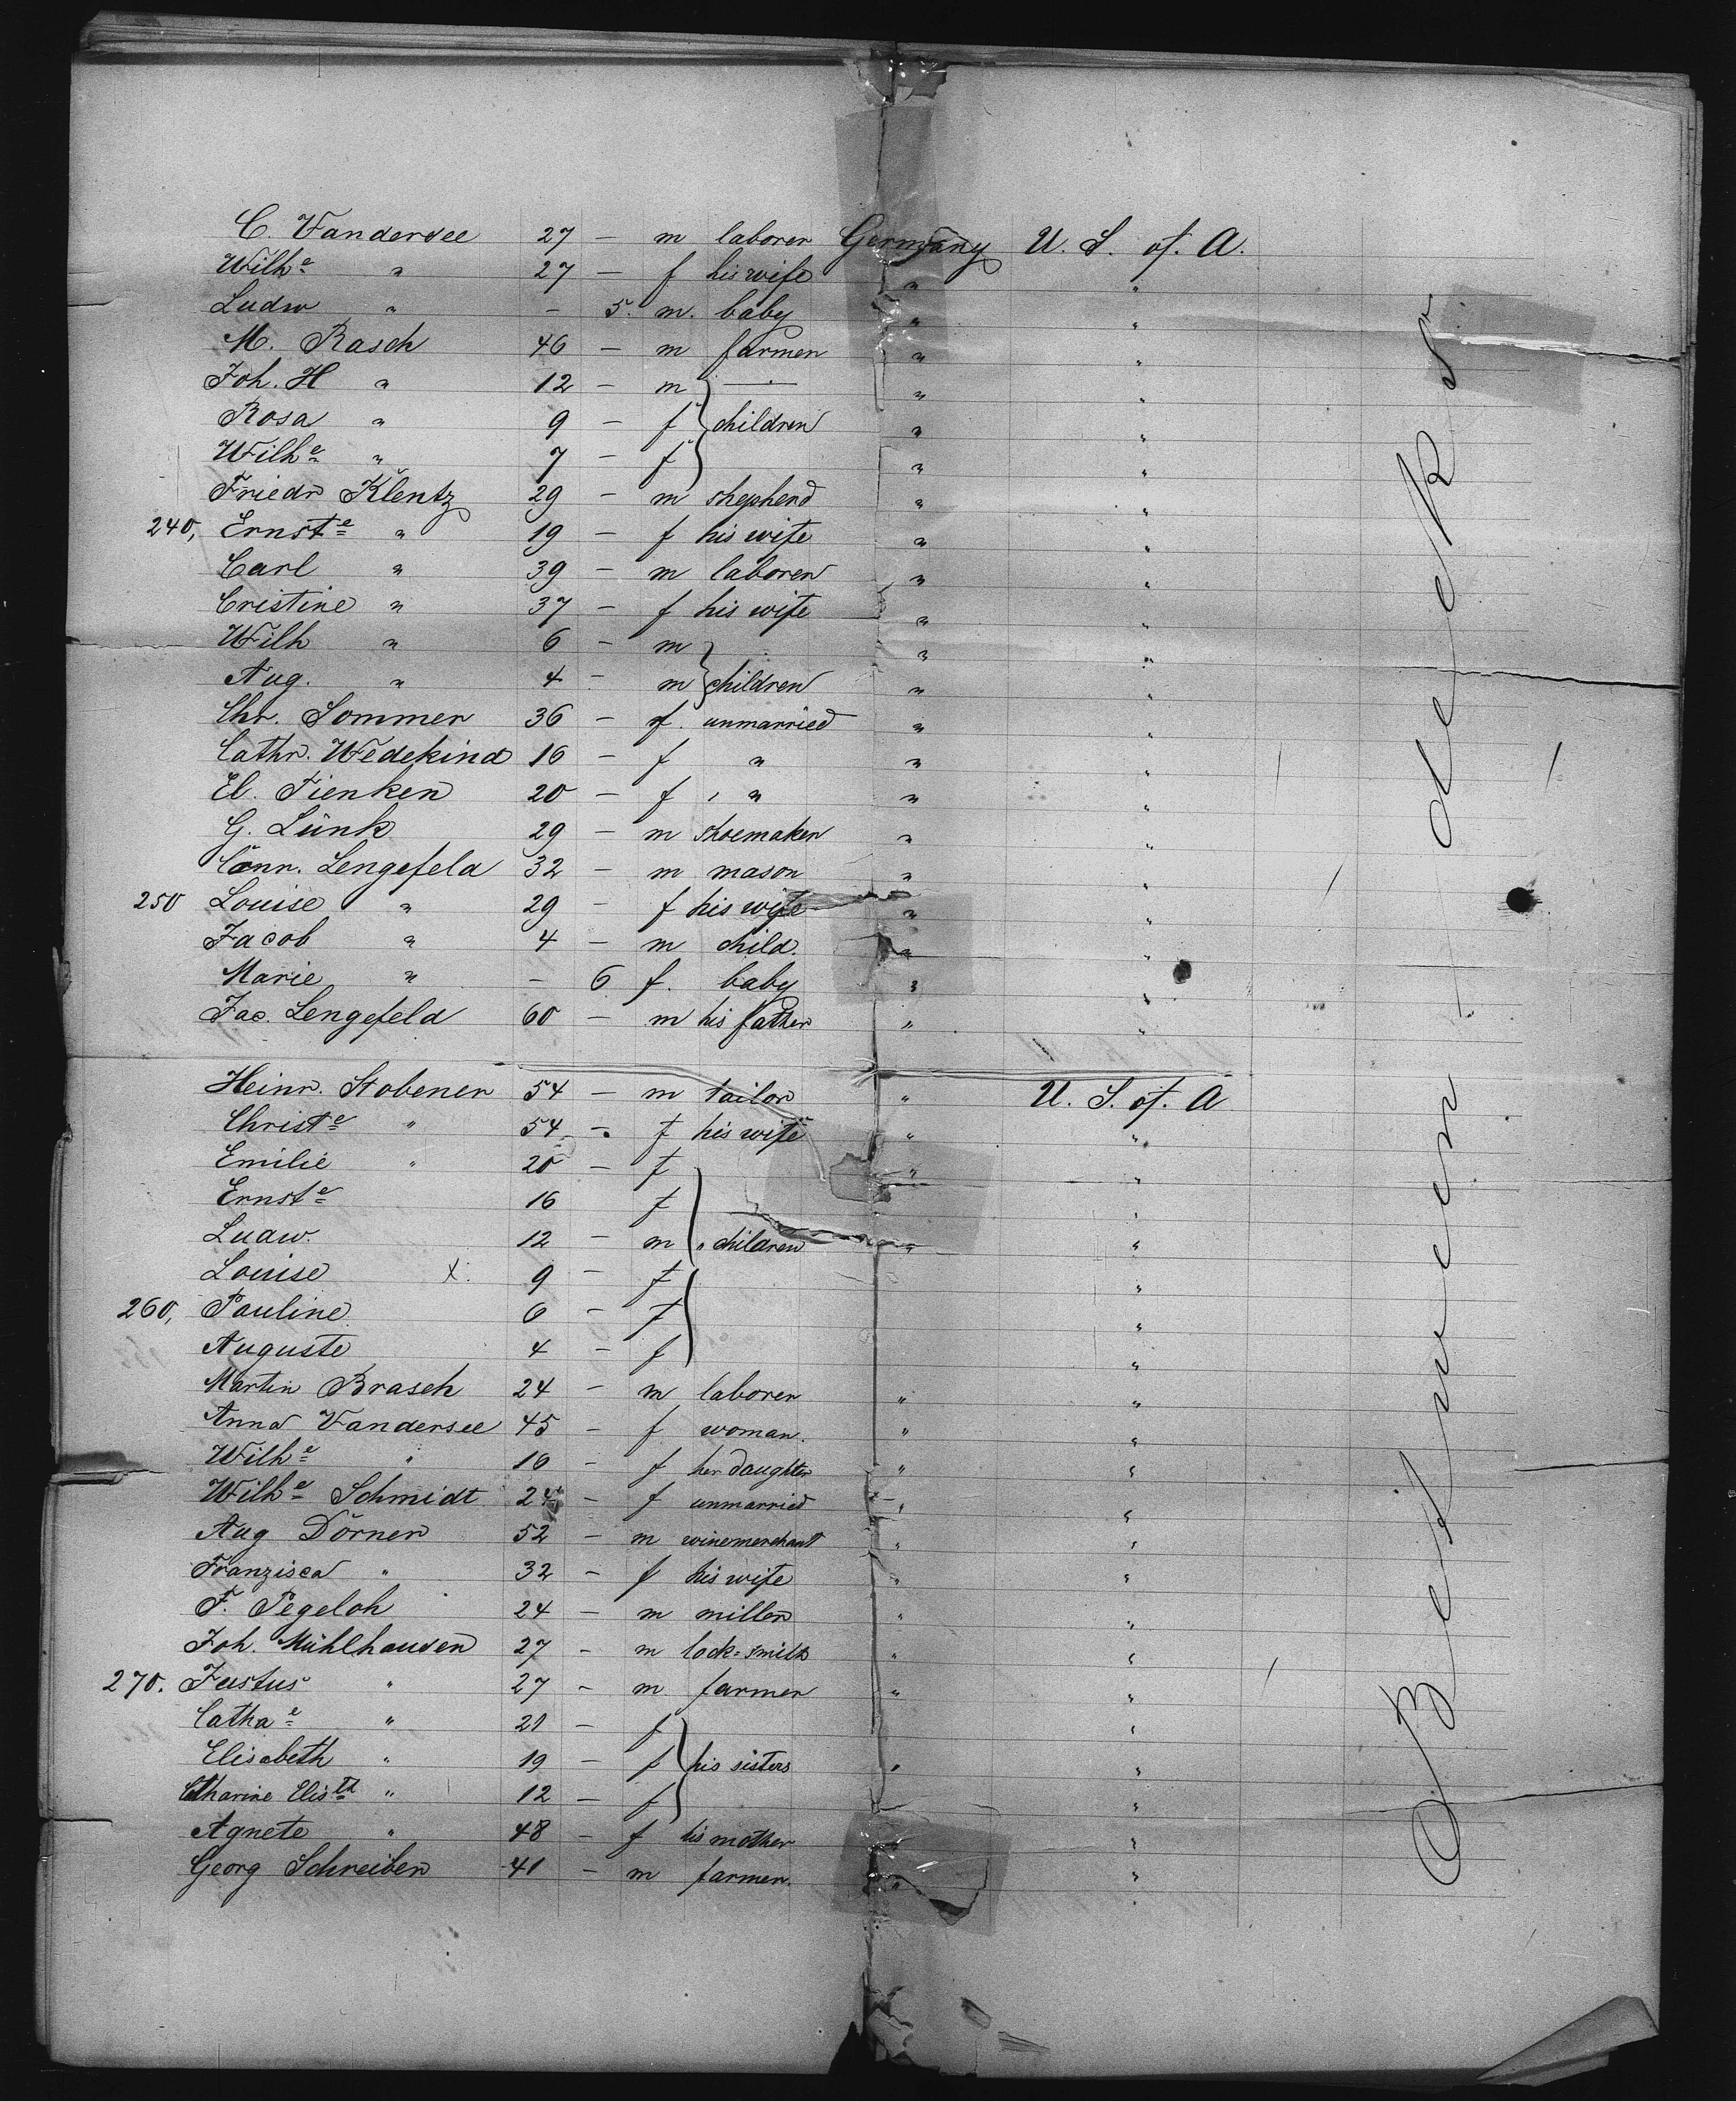 C. Vandersee 27 — m laborer Germany U. S. of. A.
Wilhe " 27 — f his wife " "
Ludw " — 5. m. baby " "
M. Rasch 46 — m farmer " "
Joh. H " 12 — m — " "
Rosa " 9 — f } children " "
Wilhe " 7 — f " "
Friedr Klentz 29 — m shepherd " "
240, Ernste " 19 — f his wife " "
Carl " 39 — m laborer " "
Cristine " 37 — f his wife " "
Wilh " 6 — m " "
Aug. " 4 - m } children " "
Chr. Sommer 36 — f. unmarried " "
Cathr. Wedekind 16 — f " " "
El. Tienken 20 — f " " "
G. Lünk 29 — m shoemaker " "
Conr. Lengefeld 32 — m mason " "
250 Louise " 29 — f his wife " "
Jacob " 4 — m child. " "
Marie " — 6 f. baby " "
Jac. Lengefeld 60 — m his father " "
Heinr. Stobener 54 — m tailor " U. S. of. A
Christe " 54 — f his wife " "
Emilie " 20 — f " "
Ernste 16 f "
Ludw. 12 — m " children " "
Louise X. 9 — f "
260, Pauline 6 — f "
Auguste 4 — f "
Martin Brasch 24 — m laborer " "
Anna Vandersee 45 — f woman. " "
Wilhe " 16 — f her daughter " "
Wilhe Schmidt 24 — f unmarried " "
Aug Dörner 52 — m winemerchant " "
Franzisca " 32 — f his wife " "
F. Pegeloh 24 — m miller " "
Joh. Mühlhausen 27 — m lock=smith " "
270. Justus " 27 — m farmer " "
Cathae " 21 — f "
Elisabeth " 19 — f } his sisters " "
Catharine Elisth " 12 — f "
Agnete " 48 — f his mother " "
Georg Schreiber 41 — m farmer. " "
Between decks